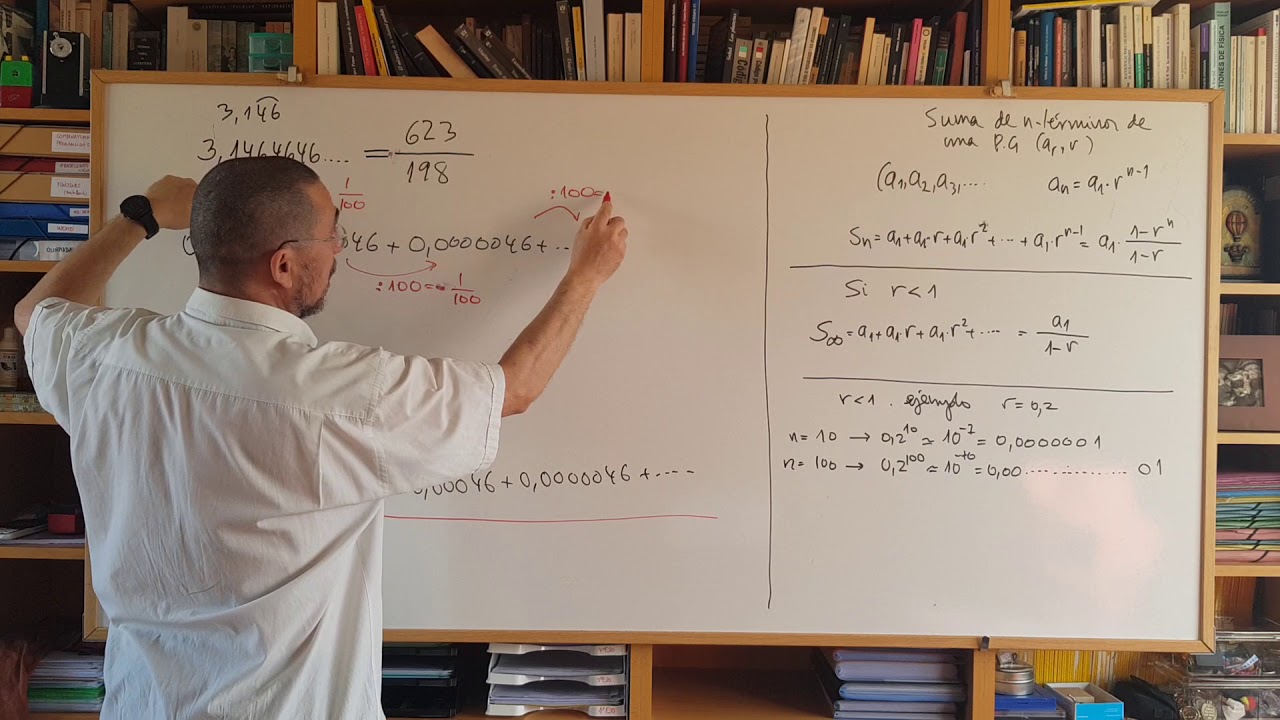 3,146
3,1464646.... = 623/198
1/100
:100=
046 + 0,0000046 + ...
:100= 1/100
0,00046 + 0,0000046 + ....
Suma de n-términos de
una P.G (a₁, r)
(a₁, a₂, a₃, .... aₙ = a₁ · rⁿ⁻¹
Sₙ = a₁ + a₁·r + a₁r² + ... + a₁·rⁿ⁻¹ = a₁ · (1-rⁿ)/(1-r)
Si r < 1
S∞ = a₁ + a₁·r + a₁·r² + .... = a₁/(1-r)
r < 1 . ejemplo r = 0,2
n = 10 → 0,2¹⁰ ≃ 10⁻⁷ = 0,0000001
n = 100 → 0,2¹⁰⁰ ≃ 10⁻⁷⁰ = 0,00.................. 01